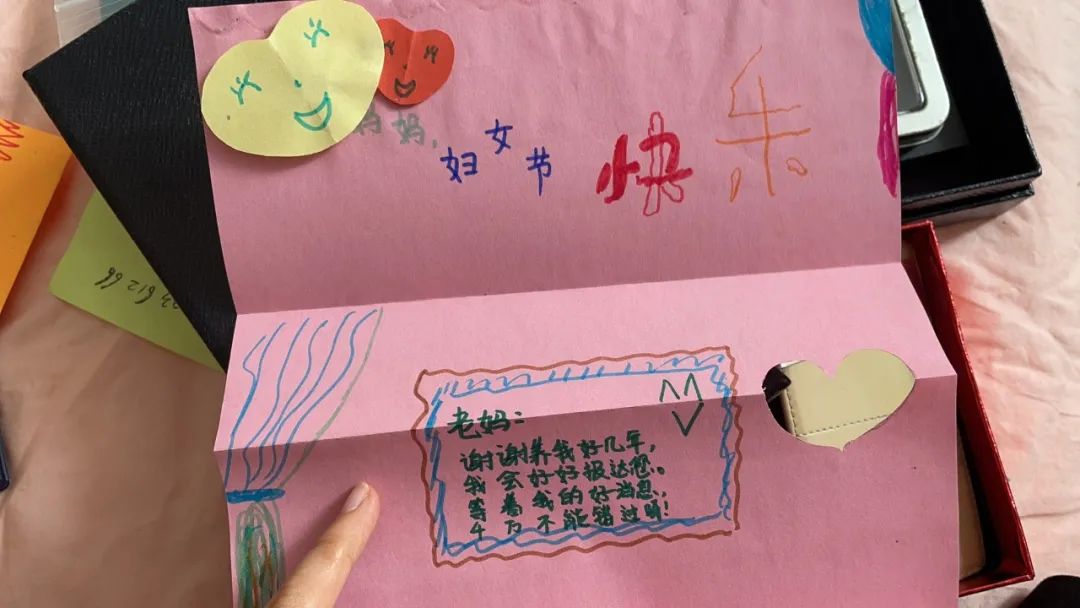 妈妈,
妇女节 快乐
老妈:
谢谢养我好几年,
我会好好报达您。
等着我的好消息,
千万不能错过哟!